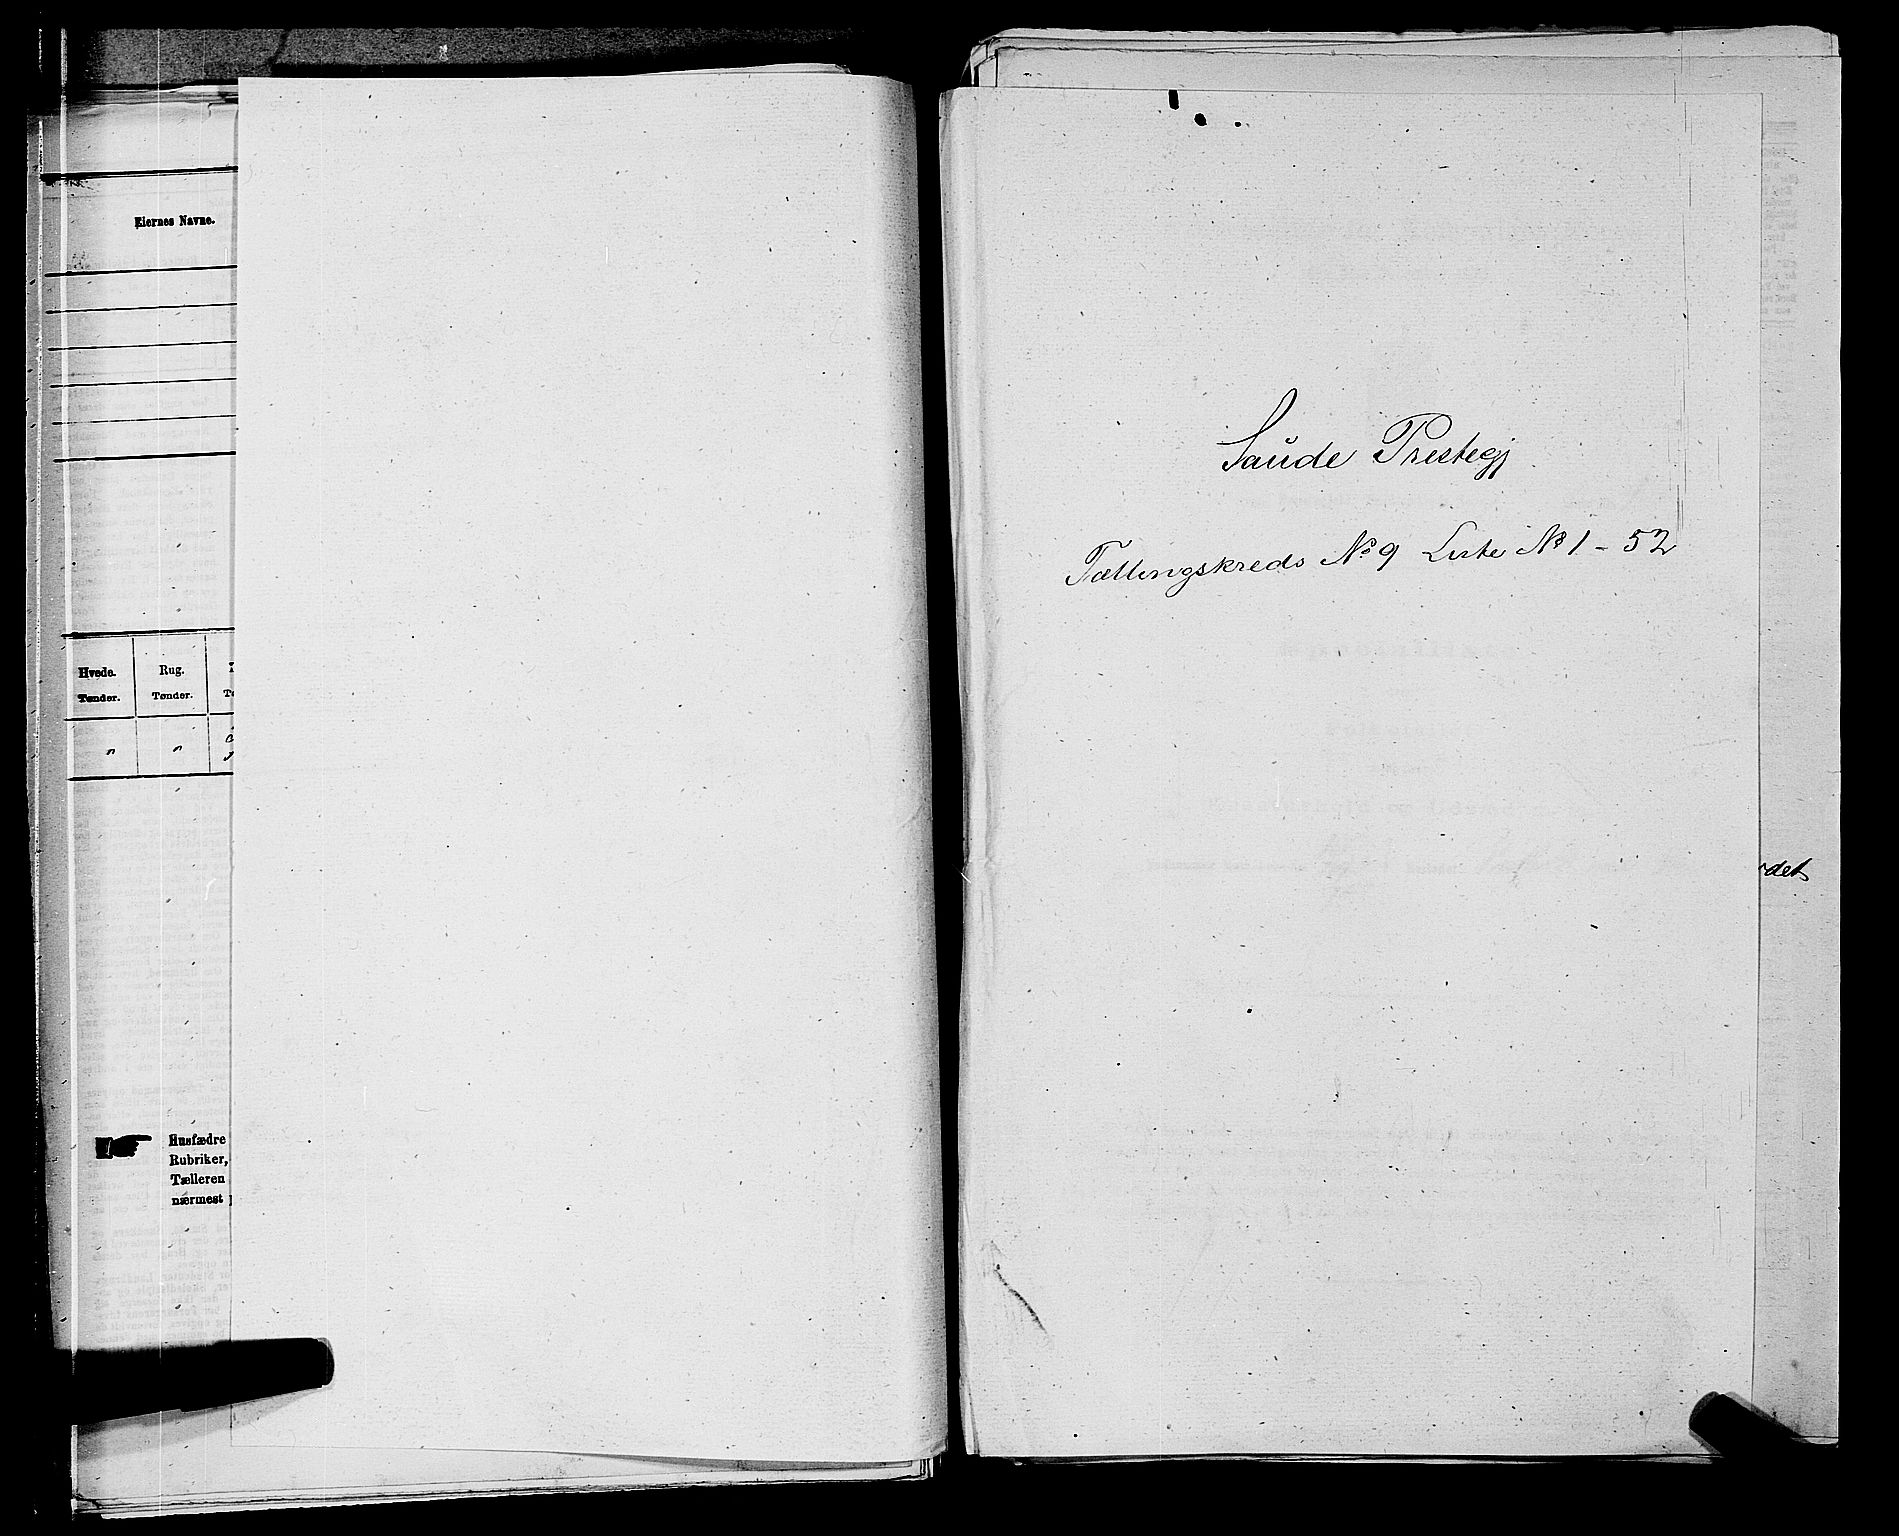 Eiernes Navne.
Hvede. Rug.
Tønder. Tønder.
" "
Husfædre
Rubriker,
Tælleren
nærmest
Saude Prestegj
Tællingskreds No 9 Liste No 1 - 52